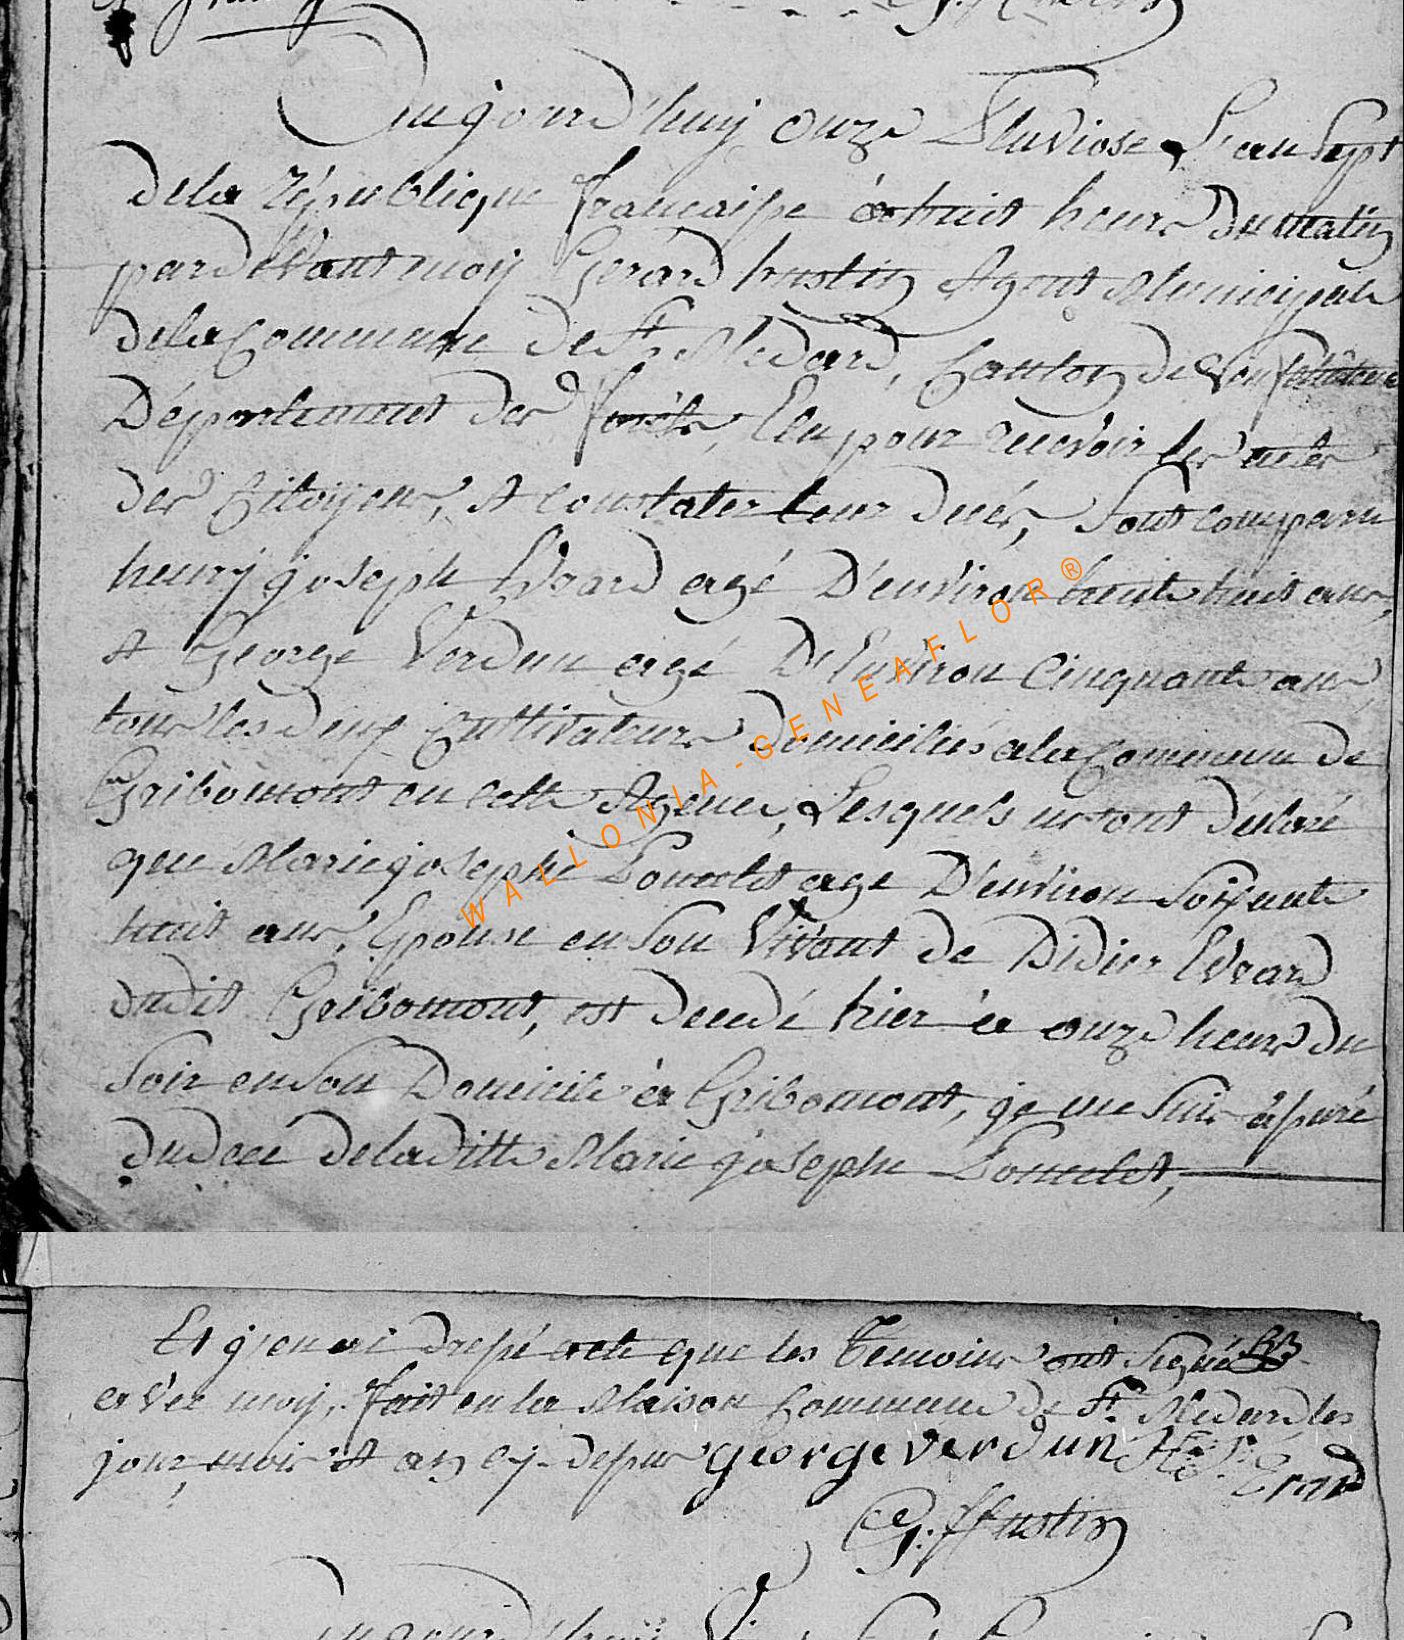 Aujourd'huy onze Pluviose L'an Sept
de la République française à huit heurs du matin
pardevant moy Gerard hustin Agent Municipale
de la Commune de St Medard, Canton de
Département des forêts, Elu pour recevoir les actes
des Citoyens, et constater leur décés, sont comparu
henry joseph Evrard agé D'environ trente huit ans,
et George Verdun agé D'Environ Cinquante ans,
tous les deux Cultivateurs Domiciliés a la Commune de
Gribomont en cette Agence, Lesquels m'ont déclaré
que Marie josephe age D'environ Soixante
huit ans, Epouse en son Vivant de Didier Evrard
dudit Gribomont, est decedé hier à onze heurs du
Soir en son Domicile à Gribomont, je me suis
du decé de laditte Marie josephe
Et j'en ai dressé acte que les Temoins ont signé
avec moy, fait en la Maison Commune de St Medard les
jour, mois et an george verdun Evrard
G. Hustin
WALLONIA-GENEAFLOR®